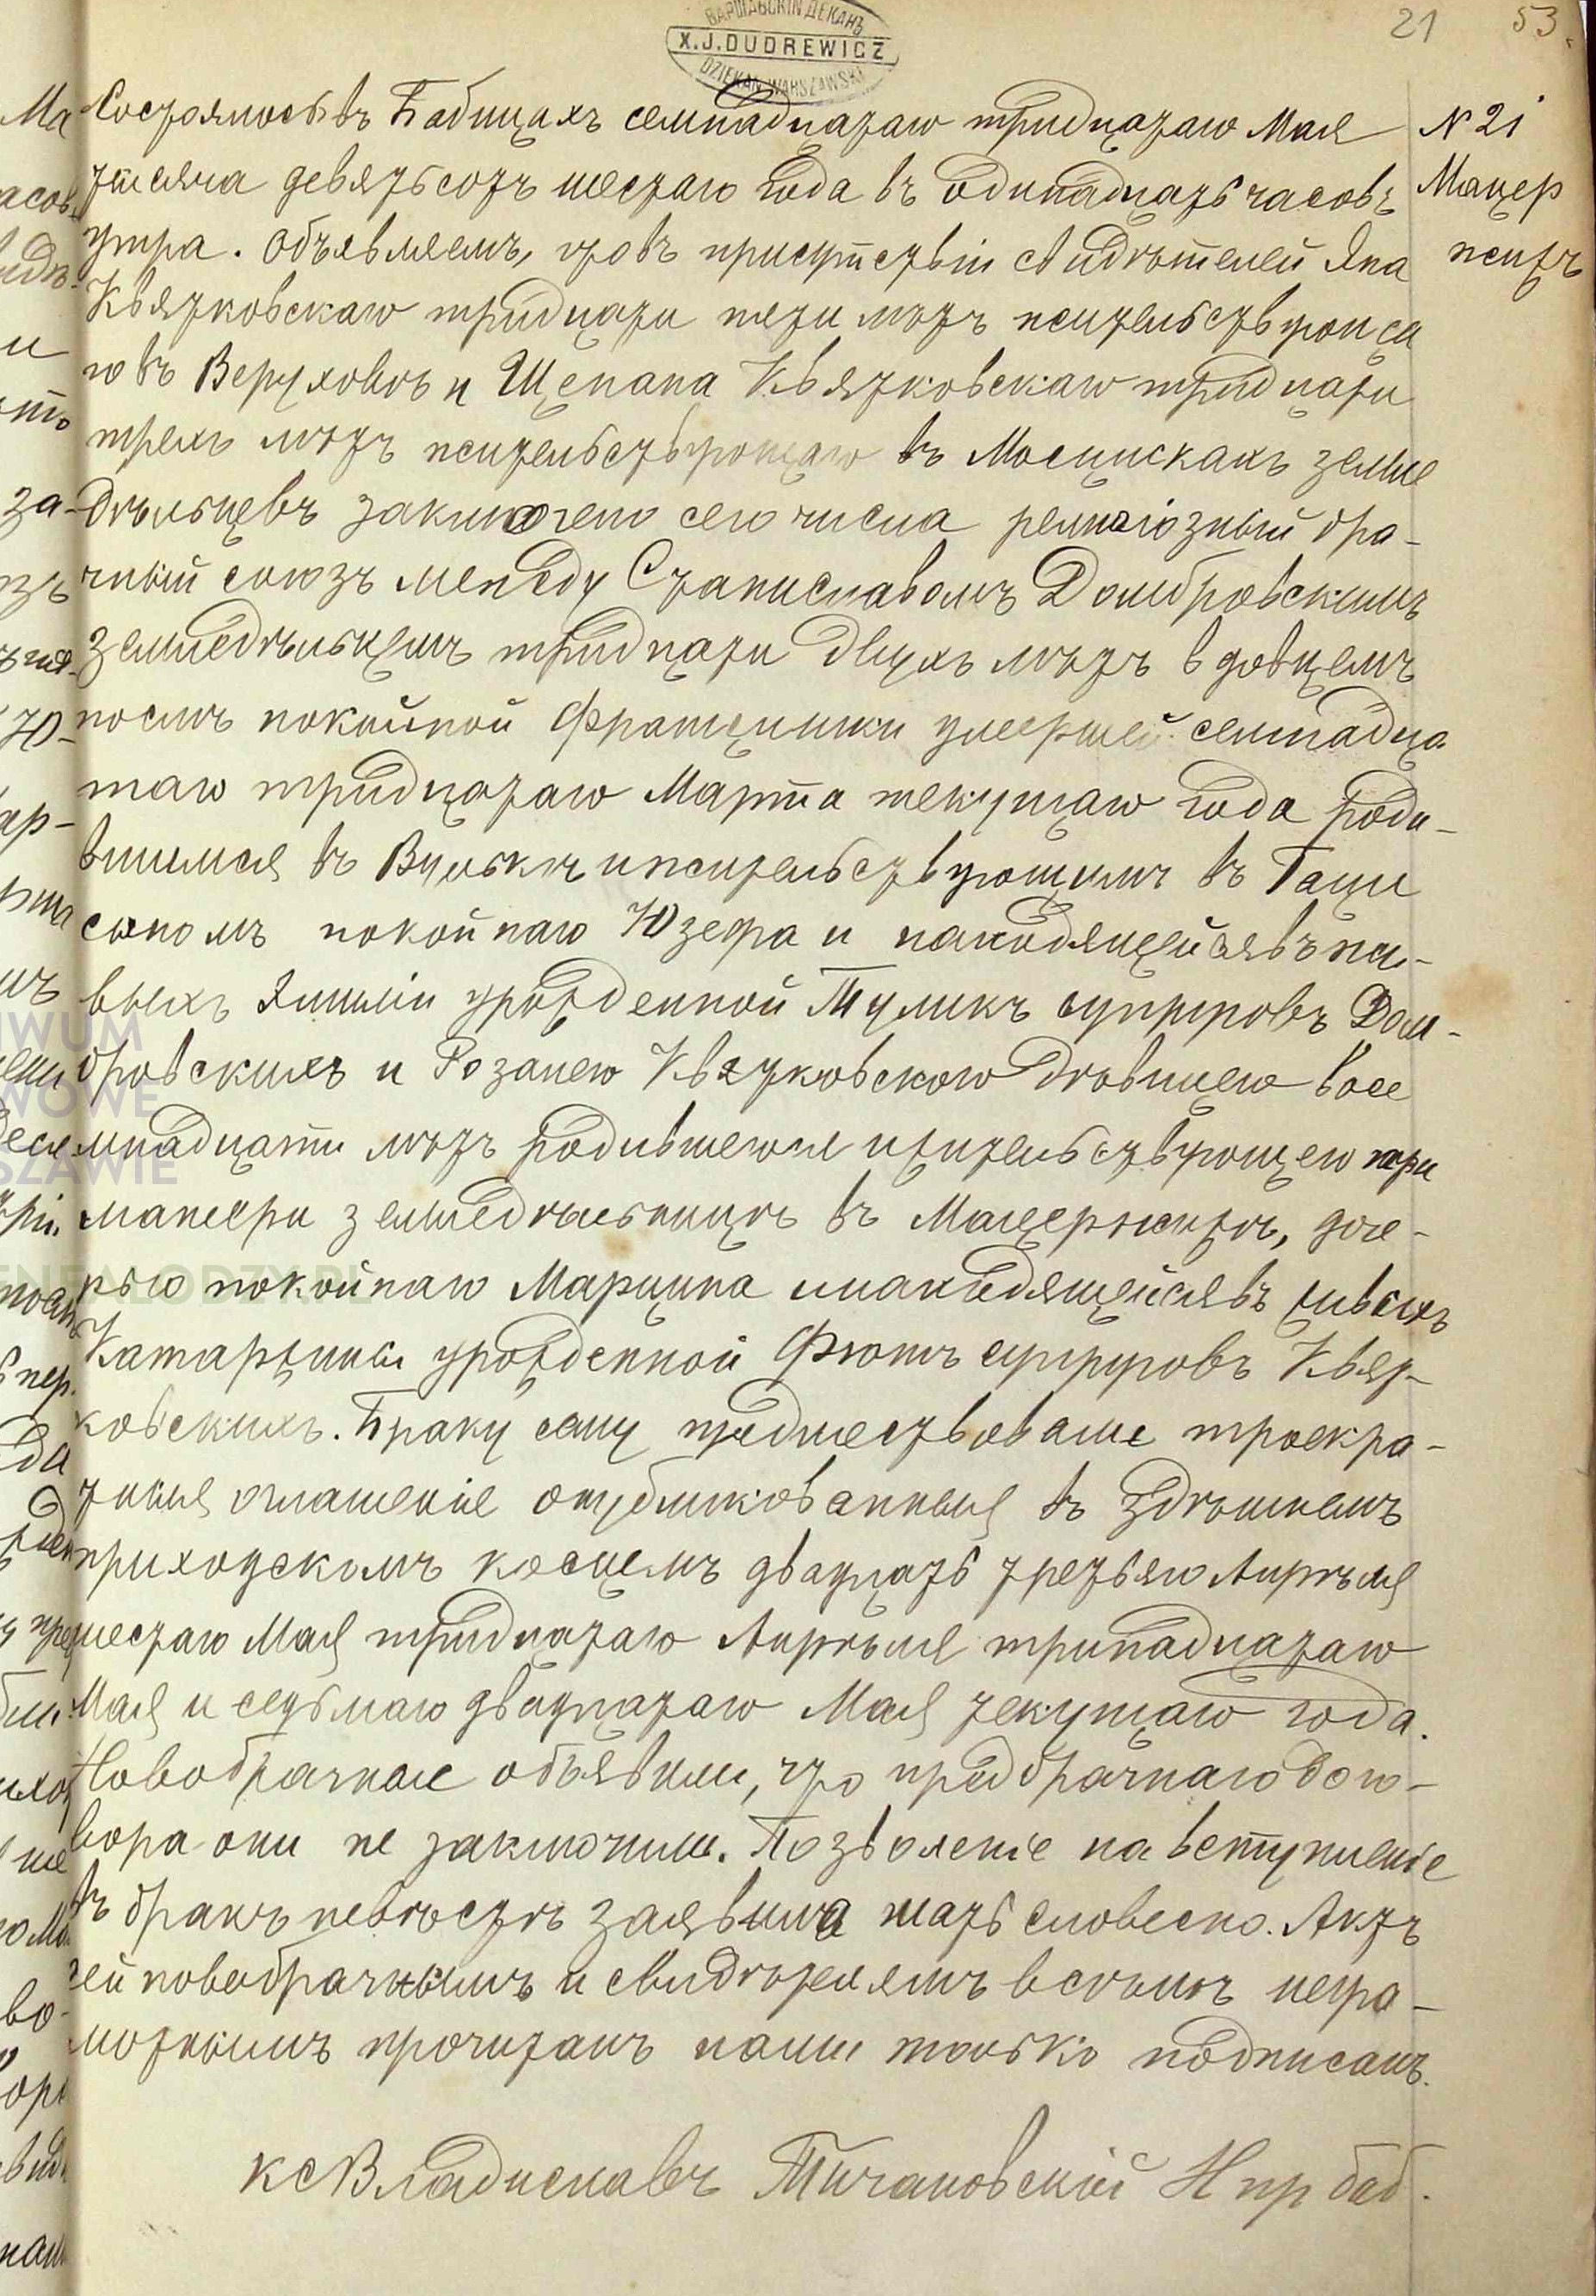 ВАРШАВСКІЙ ДЕКАНЪ
X.J.DUDREWICZ
DZIEKAN WARSZAWSKI
21 53.
Состоялось въ Бабицахъ семнадцатаго тридцатаго Мая
тысяча девятьсотъ шестаго года въ одинадцать часовъ
утра. Объявляемъ, что въ присутствіи свидѣтелей Яна
Квятковскаго тридцати пяти лѣтъ жительствующа
го въ Верухове и Щепана Квятковскаго тридцати
трехъ лѣтъ жительствующаго въ Мосцискахъ земле
дѣльцевъ заключено сего числа религіозный бра-
чный союзъ между Станиславомъ Домбровскимъ
земледѣльцемъ тридцати двухъ лѣтъ вдовцемъ
послѣ покойной Францишки умершей семнадца
таго тридцатаго Марта текущаго года роди-
вшимся въ Вулькѣ и жительствующимъ въ Гаци
сыномъ покойнаго Юзефа и находящейся въ жи-
выхъ Эмиліи урожденной Туликъ супруговъ Дом-
бровскихъ и Розаліею Квятковскою дѣвицею восе
мнадцати лѣтъ родившеюся и жительствующею при
матери земледѣльницѣ въ Мацержижѣ, доче-
рью покойнаго Марцина и находящейся въ живыхъ
Катаржины урожденной Фіютъ супруговъ Квят-
ковскихъ. Браку сему предшествовали троекра-
тныя оглашеніе опубликованныя въ здѣшнемъ
приходскомъ костелѣ двадцать третьяго Апрѣля
шестаго Мая тридцатаго Апрѣля тринадцатаго
Мая и седьмаго двадцатаго Мая текущаго года.
Новобрачные объявили, что предбрачнаго дого-
вора они не заключили. Позволеніе на вступленіе
въ бракъ невѣстѣ заявила мать словесно. Актъ
сей новобрачнымъ и свидѣтелямъ всѣмъ негра-
мотнымъ прочитанъ нами только подписанъ.
Кс Владиславъ Тичановскій Н пр баб.
N 21
Мацер
жижъ